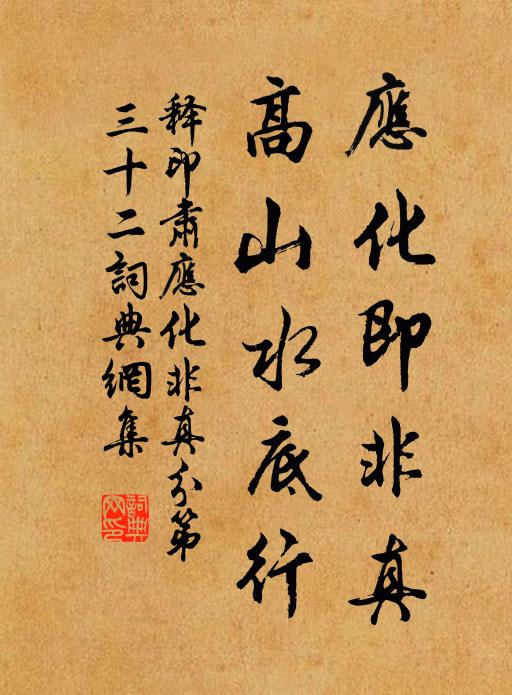 應化即非真
高山水底行
释印肃應化非真分第
三十二詞典網集
詞典
网印